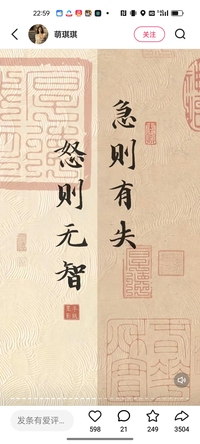 22:59
萌琪琪
关注
急则有失
怒则无智
发条有爱评...
598
21
249
3504